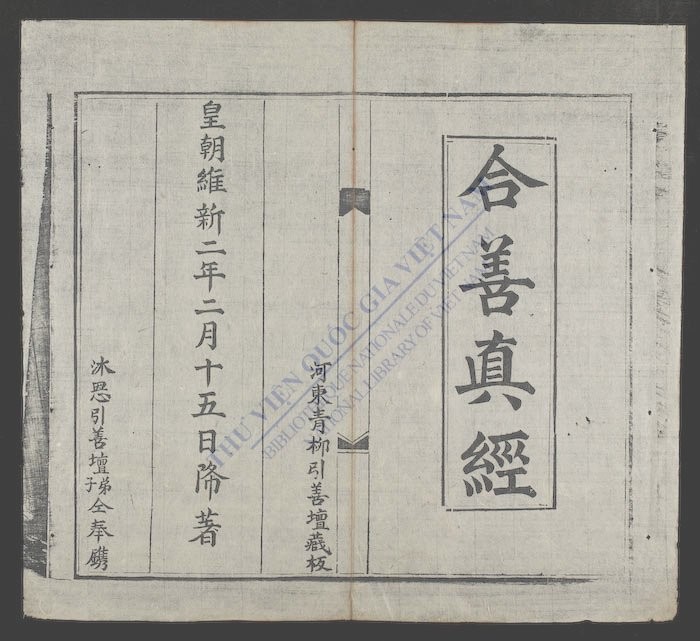 合善真經
河東青柳引善壇藏板
皇朝維新二年二月十五日降著
沐恩引善壇弟子仝奉鐫
THƯ VIỆN QUỐC GIA VIỆT NAM
BIBLIOTHEQUE NATIONALE DU VIETNAM
NATIONAL LIBRARY OF VIETNAM